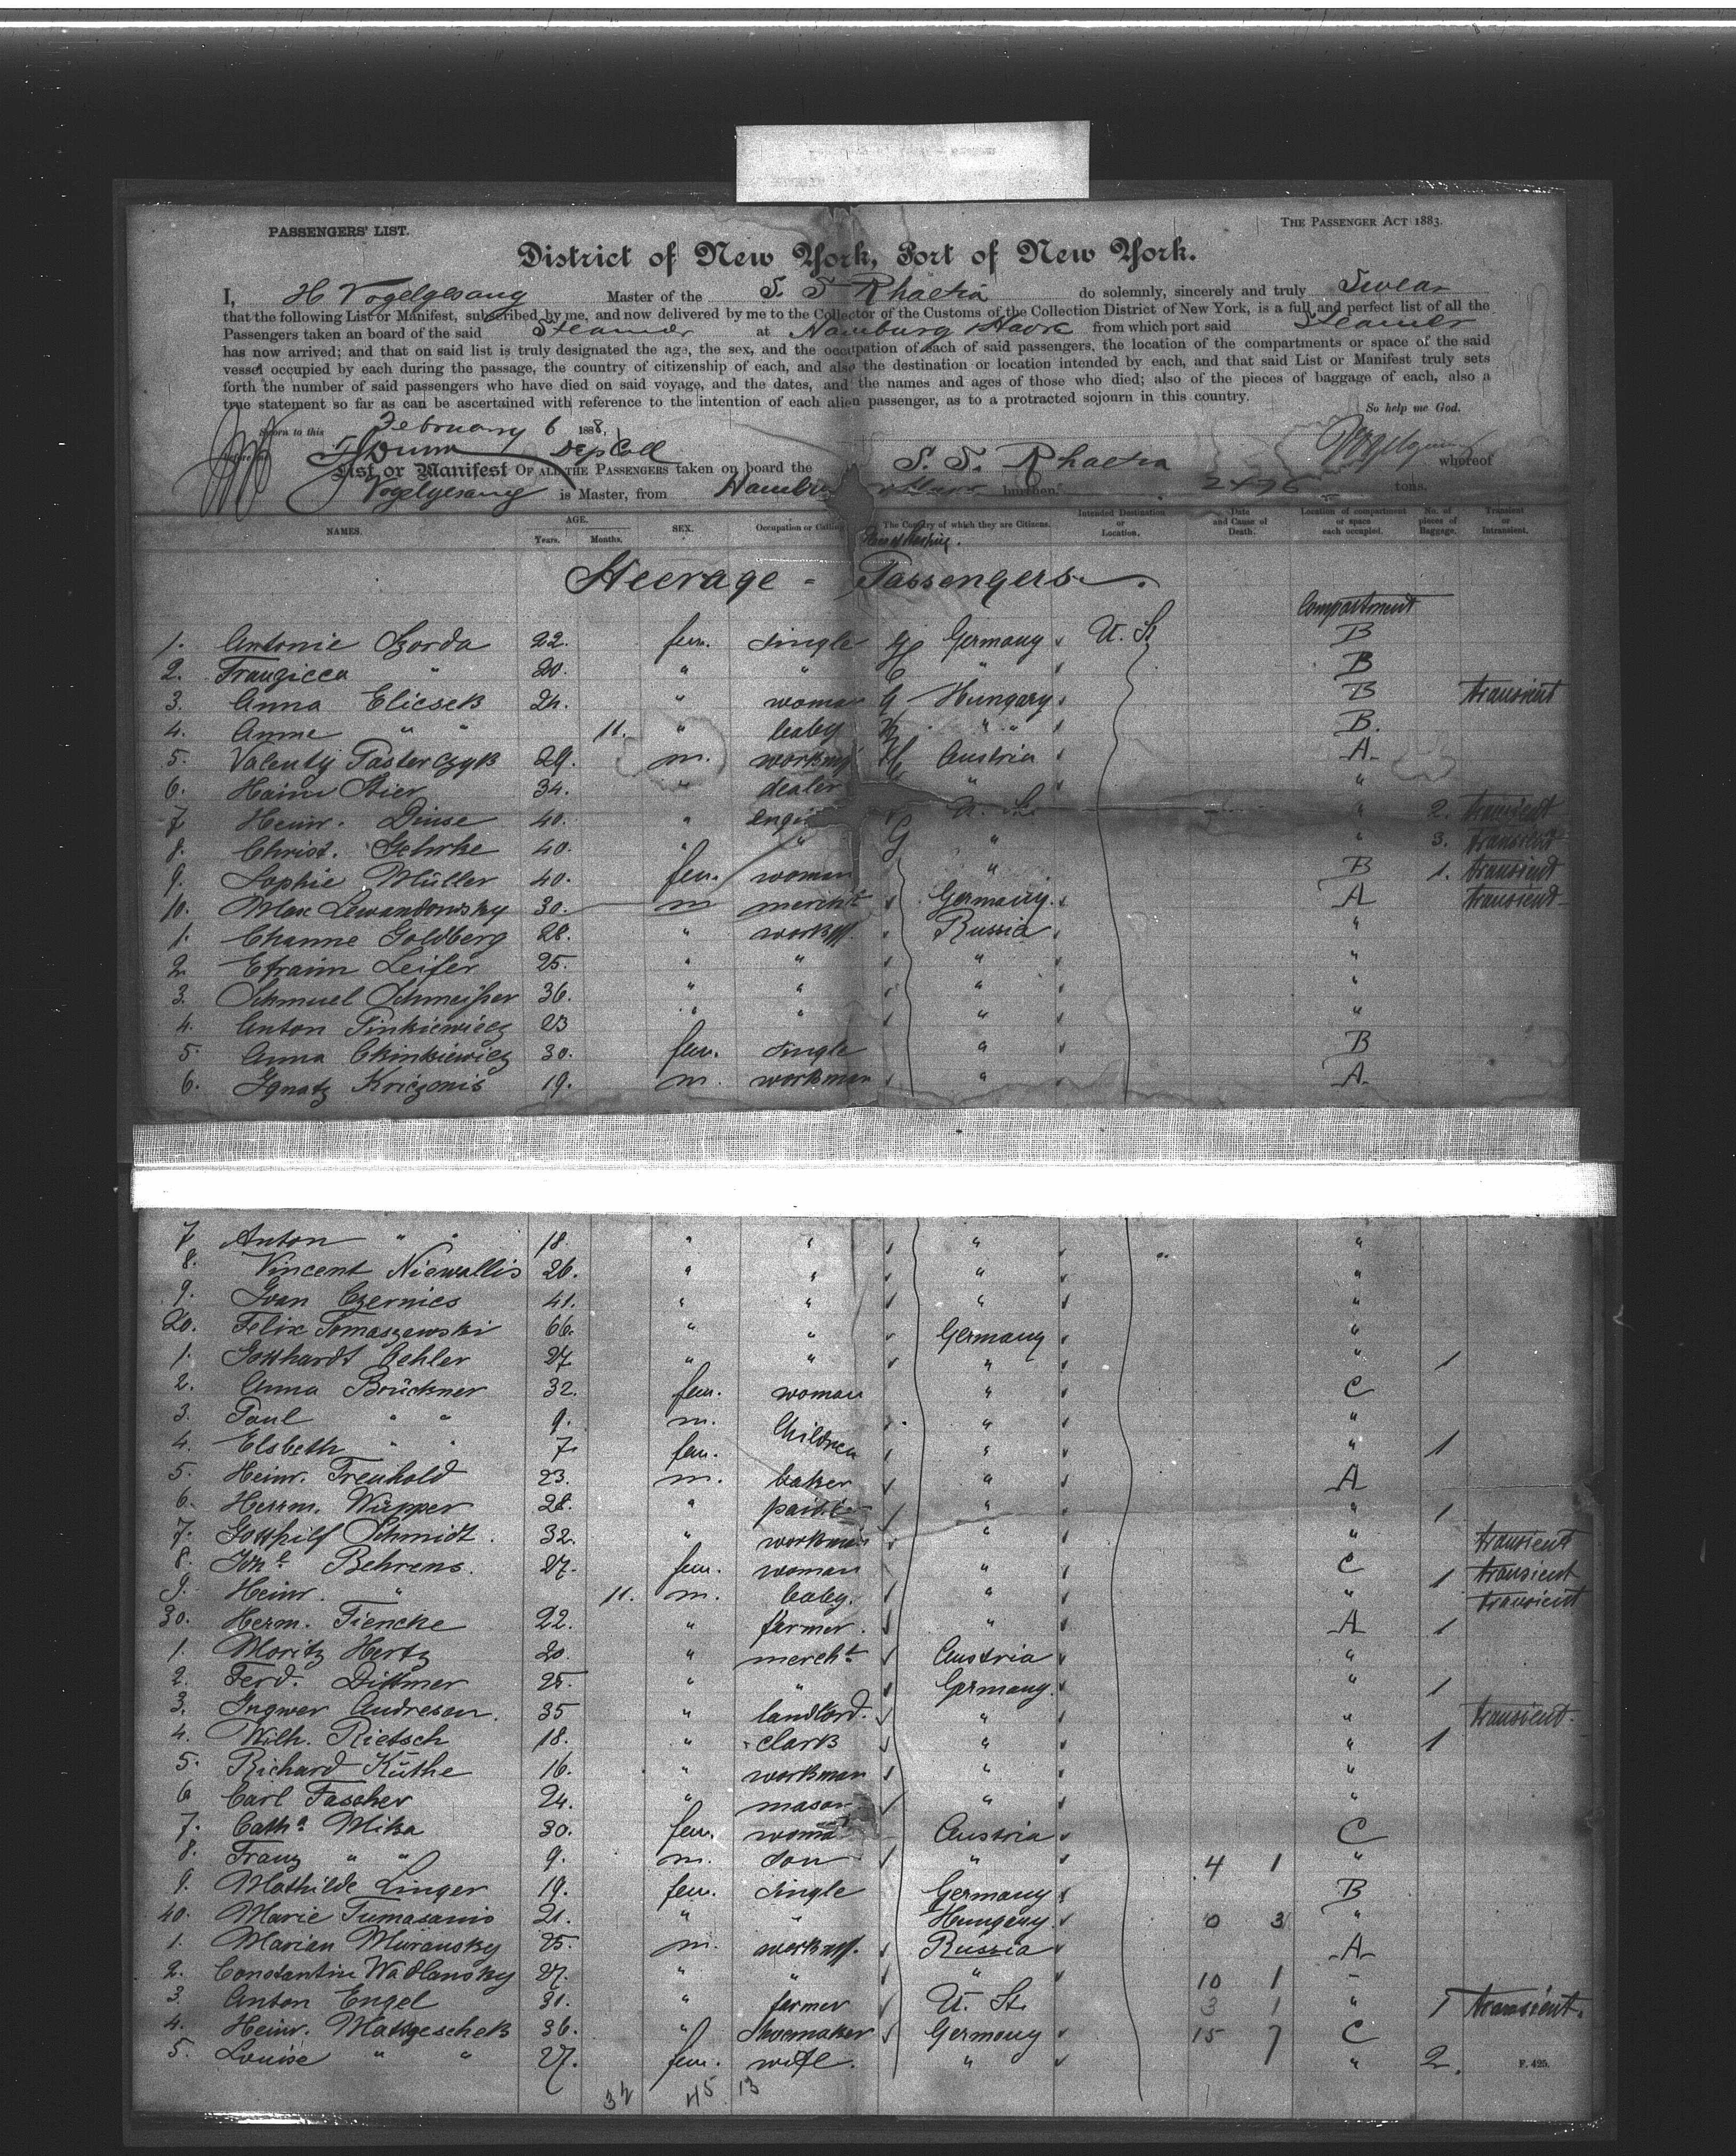 PASSENGERS' LIST.
THE PASSENGER ACT 1883.
District of New York, Port of New York.
I, H Vogelgesang Master of the S. S Rhaetia do solemnly, sincerely and truly Swear
that the following List or Manifest, subscribed by me, and now delivered by me to the Collector of the Customs of the Collection District of New York, is a full and perfect list of all the
Passengers taken an board of the said Steamer at Hamburg & Havre from which port said Steamer
has now arrived; and that on said list is truly designated the age, the sex, and the occupation of each of said passengers, the location of the compartments or space of the said
vessel occupied by each during the passage, the country of citizenship of each, and also the destination or location intended by each, and that said List or Manifest truly sets
forth the number of said passengers who have died on said voyage, and the dates, and the names and ages of those who died; also of the pieces of baggage of each, also a
true statement so far as can be ascertained with reference to the intention of each alien passenger, as to a protracted sojourn in this country.
So help me God.
Sworn to this February 6 1888,
Dunn Dep Coll
List or Manifest OF ALL THE PASSENGERS taken on board the S. S. Rhaetia whereof
Vogelgesang is Master, from Hamburg burthen tons.
NAMES. AGE. Years. Months. SEX. Occupation or Calling. The Country of which they are Citizens. Intended Destination or Location. Date and Cause of Death. Location of compartment or space each occupied. No. of pieces of Baggage. Transient or Intransient.
Steerage - Passengers.
Compartment
1. Antonie Szorda 22. fem. single Germany U. St B
2. Franzicca " 20. " " " B
3. Anna Elicsek 24. " woman G Hungary B transient
4. Anne " " 11. " baby " " B.
5. Valenty Pasterczyk 29. m. workm Austria A
6. Haim Stier 34. " dealer " "
7 Heinr. Dinse 40. " engi U. St. " 2. transient
8. Christ. Gehrke 40. " " G " " 3. transient
9. Sophie Müller 40. fem. woman " B 1. transient
10. Max Lewandowsky 30. m merch't Germany. A transient
1. Channe Goldberg 28. " workm. Russia "
2. Efraim Leifer 25. " " " "
3. Schmuel Schmeisser 36. " " " "
4. Anton Pinkiewicz 23 " " " "
5. Anna Ckinkiewicz 30. fem. single " B
6. Ignatz Kriczonis 19. m. workman " A
7 Anton " " 18. " " " "
8. Vincent Niewallis 26. " " " "
9. Ivan Czernics 41. " " " "
20. Felix Tomaszewski 66. " " Germany "
1. Gotthardt Oehler 27 " " " " 1
2. Anna Brückner 32. fem. woman " C
3. Paul " " 9. m. Children " "
4. Elsbeth " " 7 fem. " " 1
5. Heinr. Treuhold 23. m. baker " A
6. Herrm. Wüpper 28. " " " 1
7. Gotthilf Schmidt. 32. " workman " " transient
8. Joh.e Behrens. 27. fem. woman " C 1 transient
9. Heinr. " 11. m. baby. " " transient
30. Herm. Tiencke 22. " farmer. " A 1
1. Moritz Hertz 20. " mercht Austria "
2. Ferd. Dittmer 25. " " Germany. " 1
3. Ingwer Andresen. 35 " landlord. " " transient.
4. Wilh. Rietsch 18. " clark " " 1
5. Richard Küthe 16. " workman " "
6 Carl Fascher 24. " mason " "
7. Cath.a Mika 30. fem. woman Austria C
8. Franz " " 9. m. son " 4 1 "
9. Mathilde Linger 19. fem. single Germany B
40. Marie Tumasanis 21. " " Hungary. 0 3 "
1. Marian Muransky 25. m. workm. Russia A
2. Constantin Wadlansky 27. " " " 10 1 "
3. Anton Engel 31. " farmer U. St. 3 1 " 1 transient.
4. Heinr. Matzgeschek 36. " Shoemaker Germany 15 7 C
5. Louise " " 27. fem. wife. " " 2.
F. 425.
45 13